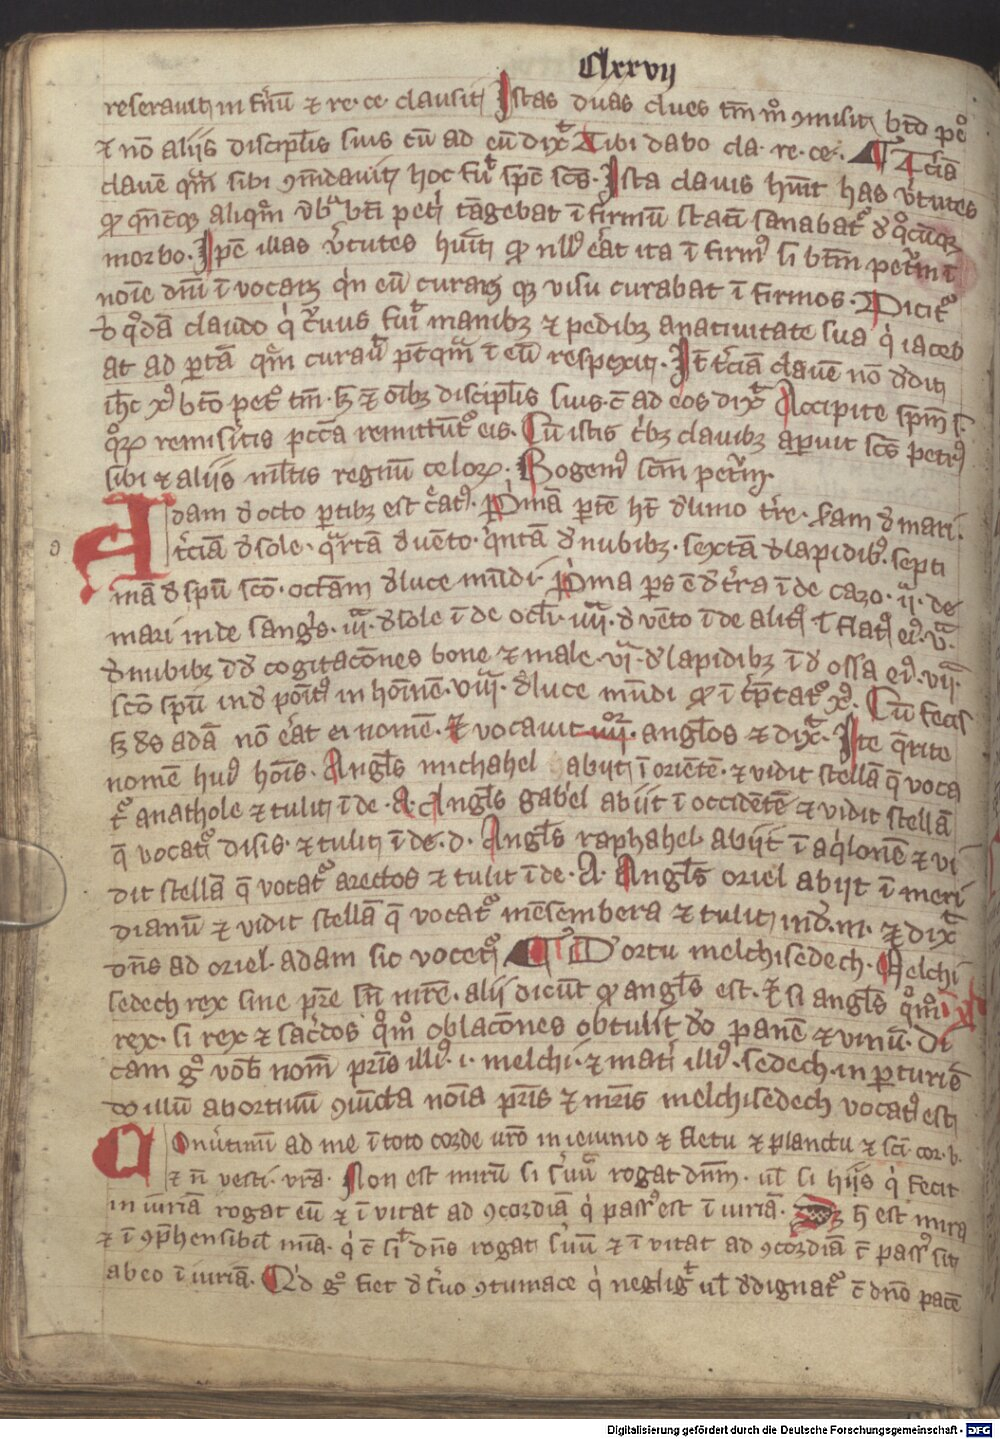 Clxxvij
reserauit in t̄rū ⁊ re· ce clausit Istas duas claues tm̄ mō ꝯmisit bt̄o peto
⁊ nō aliis discipl̄is suis cū ad eū dix̄ Tibi dabo cla· re· ce· Tc̄iā
clauē qm̄ sibi ꝯmēdauit hoc fuͭ sp̄c sc̄s· Ista clauis hūit has v̓tutes
aliqm̄ vb̄ bt̄i pet̓ tāgebat ī firmū statī sanabatᷣ
morbo· Ipē illas v̓tutes hūit ꝙ nll̓ēāt ita ī firmꝰ si bt̄m petᷣm ī
noīe dn̄i ī vocaꝫ qn̄ eū curaꝫ ꝙ visu curabat ī firmos· Dicitᷣ
qͦdā claudo qͥ manibꝫ ⁊ pedibꝫ a natiuitate sua qͥ iaceb
at ad ꝑtā qm̄ curaū eū respexit· It̄ tc̓iā clauē nō dedit
ih̄c xp̄ bt̄o petᷣ tm̄· sꝫ ⁊ oībꝫ discipl̄is suis· ad eos dix̄ͭ Accipite sp̄m s·
qͦꝝ remis̓itis pcc̄a remittūtᷣ eis· Cū istis tͥbꝫ clauibꝫ aperuit sc̄s petrꝰ
sibi ⁊ aliis ml̄tis regnū celoꝝ· Rogemꝰ sc̄m petᷣm·
Adam d̓ octo ꝑtibꝫ est c̓atꝰ· Pͥmā ꝑtē ht̄ d̓ limo tr̄e· scd̄am d̓ mari·
tc̓iā d̓ sole· qͣrtā d̓ uēto· qͥntā d̓ nubibꝫ· sextā d̓ lapidibꝰ· septi
mā d̓ spū sc̄o· octām d̓ luce mūdi· Pͥma ꝑs ē d̓ tr̄ra īde caro· ij· de
mari inde sangͥs· iijͣ· d̓ sole īde ocl̄i· iiijͣ· d̓ vēto īde alitꝰ ł flatꝰ eiꝰ· vͣ·
d̓ nubibꝫ īd̓ cogitac̄ones bone ⁊ male· vjͣ· d̓ lapidibꝫ īd̓ ossa eiꝰ· vijͣ·
sc̄o spū ind̓ pōitꝰ in hoīnē· viijͣ· d̓ luce mūdi ꝙ īt̄p̄tatᷣ xp̄c· Cū fecis
sꝫ ds̄ adā nō eāt ei nomē· ⁊ vocauit iiijoꝛ angl̄os ⁊ dix̄ͭ· Ite q̄rite
nomē huiꝰ hoīs· Angl̄s michahel abiit ī oriētē· ⁊ vidit stellā q̄ voca
tᷣ anathole ⁊ tulit īde· A· Angl̄s gabel abiit ī occidētē ⁊ vidit stellā
q̄ vocatᷣ disis· ⁊ tulit īde· d· Angl̄s raphahel abijt ī aqͥlonē ⁊ vi
dit stellā q̄ vocatᷣ arectos ⁊ tulit īde· A· Angl̄s oriel abijt ī meri
dianū ⁊ vidit stellā q̄ vocatᷣ mēsembera ⁊ tulit ind̓· m· ⁊ dix̄ͭ
dn̄s ad oriel adam sic vocetᷣ Dortu melchisedech· Melchi
sedech rex sine pr̄e sn̄ mr̄e· alij dicūt ꝙ angl̄s est· ⁊ si angl̄s qͦmͦ
rex· si rex ⁊ sac̓dos qͦmͦ oblac̄ones obtulit d̓o panē ⁊ vinū· Di
cam gͦ vob̄ nom̄ pr̄is illiꝰ· i· melchi· ⁊ mat̓ illiꝰ· sedech· in ꝑturiē
do illū abortiuū ꝯiūcta noīa pr̄is ⁊ mr̄is melchisedech vocatꝰ est
Conūtimī ad me ī toto corde vr̄o in ieiunio ⁊ fletu ⁊ planctu ⁊ sci· cor· v·
⁊ n̄ vesti· vr̄a· Non est mirū si s̓uū rogat dn̄m· ul̄ si hijs qͥ fecit
in iuriā rogat eū ⁊ īuitat ad ꝯcordiā qͥ passꝰ est īiuriā· h̄ est mira
⁊ īꝯp̄hensibil mīa· qͥ dn̄s rogat s̓uū ⁊ īuitat ad ꝯcordiā passꝰ sit
ab eo īiuriā· Qͥd gͦ fiet d̓ s̓uo ꝯtumace qͥ neglig̓ͭ ul̄ d̓dignatᷣ dn̄o pacē
Digitalisierung gefördert durch die Deutsche Forschungsgemeinschaft - DFG